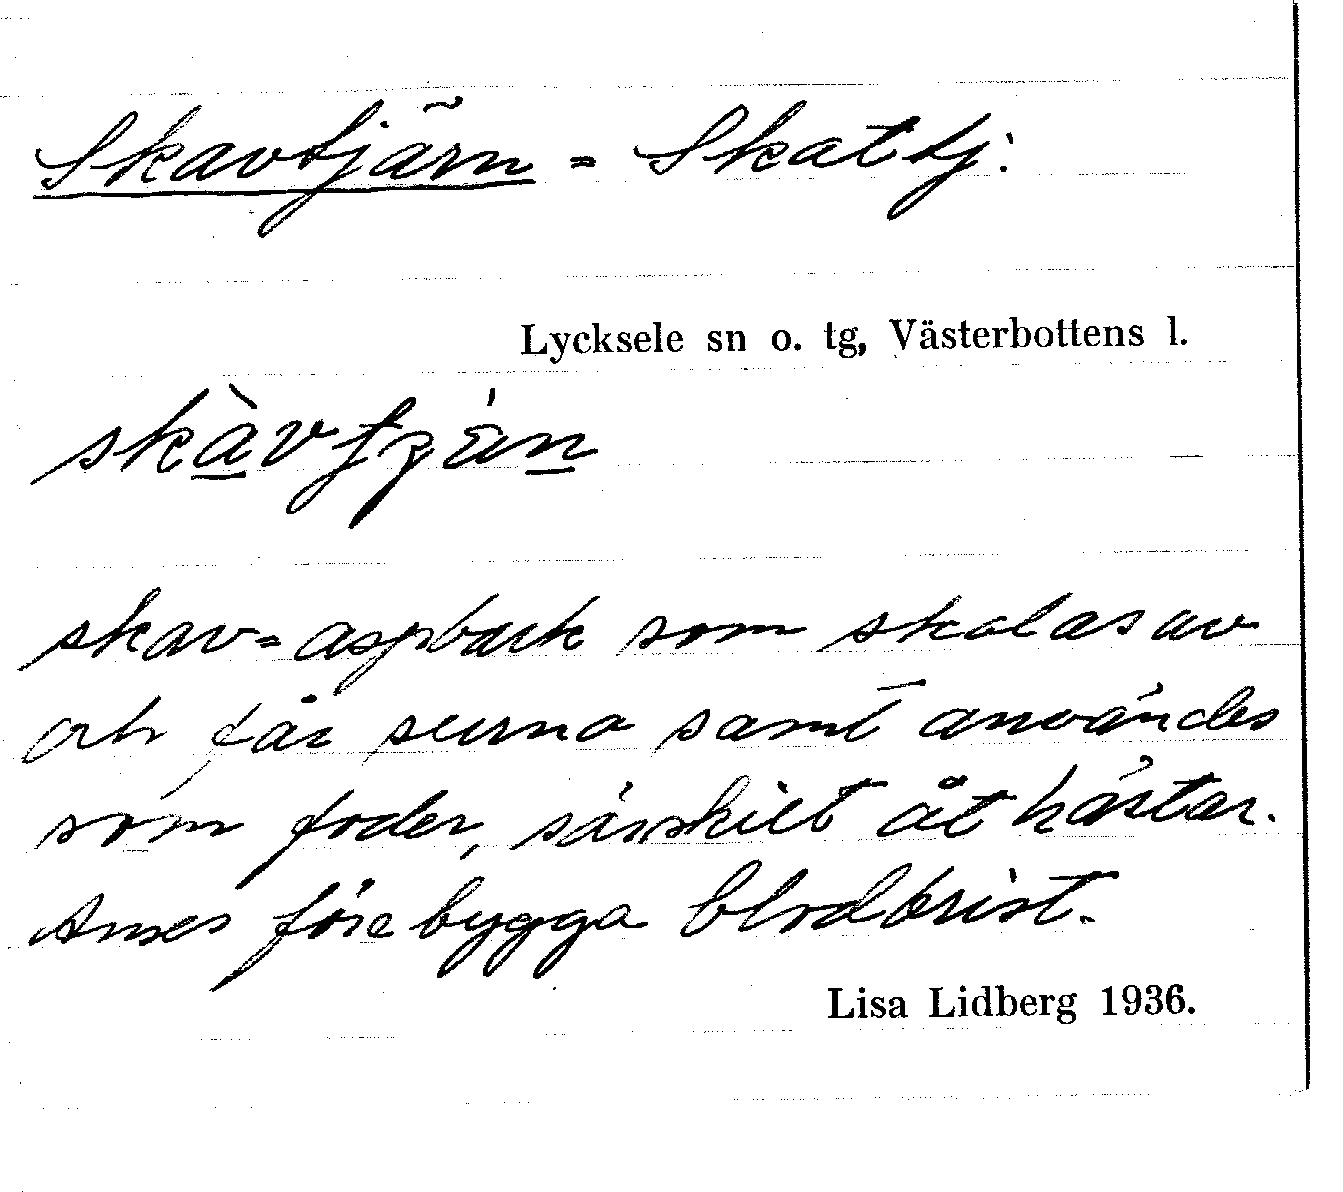 Skavtjärn = Skattj:
Lycksele sn o. tg, Västerbottens l.
skàvtjän
skav = aspbark som skalas av
och får surna samt användes
som foder, särskilt åt hästar.
Anses förebygga blodbrist.
Lisa Lidberg 1936.